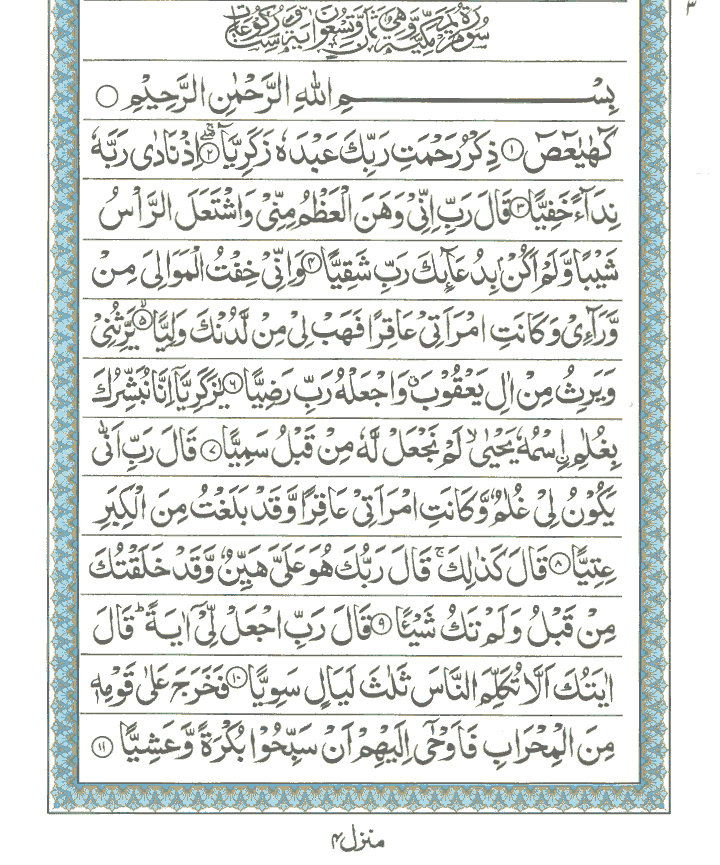 ٣
سُوْرَةُ مَرْيَمَ مَكِّيَّةٌ وَّهِيَ ثَمَانٍ وَّتِسْعُوْنَ اٰيَةً وَّسِتُّ رُكُوْعَاتٍ
بِسْمِ اللهِ الرَّحْمٰنِ الرَّحِيْمِ ○
كٓهٰيٰعٓصٓ ۝١ ذِكْرُ رَحْمَتِ رَبِّكَ عَبْدَهٗ زَكَرِيَّا ۝٢ اِذْ نَادٰى رَبَّهٗ
نِدَآءً خَفِيًّا ۝٣ قَالَ رَبِّ اِنِّىْ وَهَنَ الْعَظْمُ مِنِّىْ وَاشْتَعَلَ الرَّاْسُ
شَيْبًا وَّلَمْ اَكُنْۢ بِدُعَآئِكَ رَبِّ شَقِيًّا ۝٤ وَاِنِّىْ خِفْتُ الْمَوَالِىَ مِنْ
وَّرَآءِىْ وَكَانَتِ امْرَاَتِىْ عَاقِرًا فَهَبْ لِىْ مِنْ لَّدُنْكَ وَلِيًّا ۝٥ يَّرِثُنِىْ
وَيَرِثُ مِنْ اٰلِ يَعْقُوْبَ ۖ وَاجْعَلْهُ رَبِّ رَضِيًّا ۝٦ يٰزَكَرِيَّآ اِنَّا نُبَشِّرُكَ
بِغُلٰمِ اِۨسْمُهٗ يَحْيٰى ۙ لَمْ نَجْعَلْ لَّهٗ مِنْ قَبْلُ سَمِيًّا ۝٧ قَالَ رَبِّ اَنّٰى
يَكُوْنُ لِىْ غُلٰمٌ وَّكَانَتِ امْرَاَتِىْ عَاقِرًا وَّقَدْ بَلَغْتُ مِنَ الْكِبَرِ
عِتِيًّا ۝٨ قَالَ كَذٰلِكَ ۚ قَالَ رَبُّكَ هُوَ عَلَىَّ هَيِّنٌ وَّقَدْ خَلَقْتُكَ
مِنْ قَبْلُ وَلَمْ تَكُ شَيْئًا ۝٩ قَالَ رَبِّ اجْعَلْ لِّىْٓ اٰيَةً ؕ قَالَ
اٰيَتُكَ اَلَّا تُكَلِّمَ النَّاسَ ثَلٰثَ لَيَالٍ سَوِيًّا ۝١٠ فَخَرَجَ عَلٰى قَوْمِهٖ
مِنَ الْمِحْرَابِ فَاَوْحٰٓى اِلَيْهِمْ اَنْ سَبِّحُوْا بُكْرَةً وَّعَشِيًّا ۝١١
منزل ٤